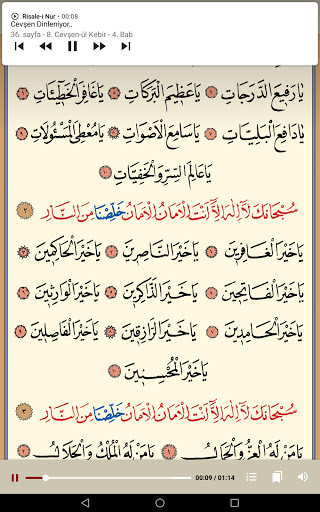 Risale-i Nur • 00:08
Cevşen Dinleniyor..
36. sayfa - 8. Cevşen-ül Kebir - 4. Bab
يَا رَفِيعَ الدَّرَجَاتِ ١ يَا عَظِيمَ الْبَرَكَاتِ ٨ يَا غَافِرَ الْخَطِيئَاتِ
يَا دَافِعَ الْبَلِيَّاتِ ٧ يَا سَامِعَ الْأَصْوَاتِ ٨ يَا مُعْطِيَ الْمَسْئُولَاتِ ٩
يَا عَالِمَ السِّرِّ وَالْخَفِيَّاتِ ١٠
سُبْحَانَكَ لَا إِلٰهَ إِلَّا أَنْتَ الْأَمَانُ الْأَمَانُ خَلِّصْنَا مِنَ النَّارِ ٢
يَا خَيْرَ الْغَافِرِينَ ١ يَا خَيْرَ النَّاصِرِينَ ٢ يَا خَيْرَ الْحَاكِمِينَ ٣
يَا خَيْرَ الْفَاتِحِينَ ٤ يَا خَيْرَ الذَّاكِرِينَ ٥ يَا خَيْرَ الْوَارِثِينَ ٦
يَا خَيْرَ الْحَامِدِينَ ٧ يَا خَيْرَ الرَّازِقِينَ ٨ يَا خَيْرَ الْفَاصِلِينَ ٩
يَا خَيْرَ الْمُحْسِنِينَ ١٠
سُبْحَانَكَ لَا إِلٰهَ إِلَّا أَنْتَ الْأَمَانُ الْأَمَانُ خَلِّصْنَا مِنَ النَّارِ ٣
يَا مَنْ لَهُ الْعِزُّ وَالْجَمَالُ ١ يَا مَنْ لَهُ الْمُلْكُ وَالْجَلَالُ ٢
00:09 / 01:14